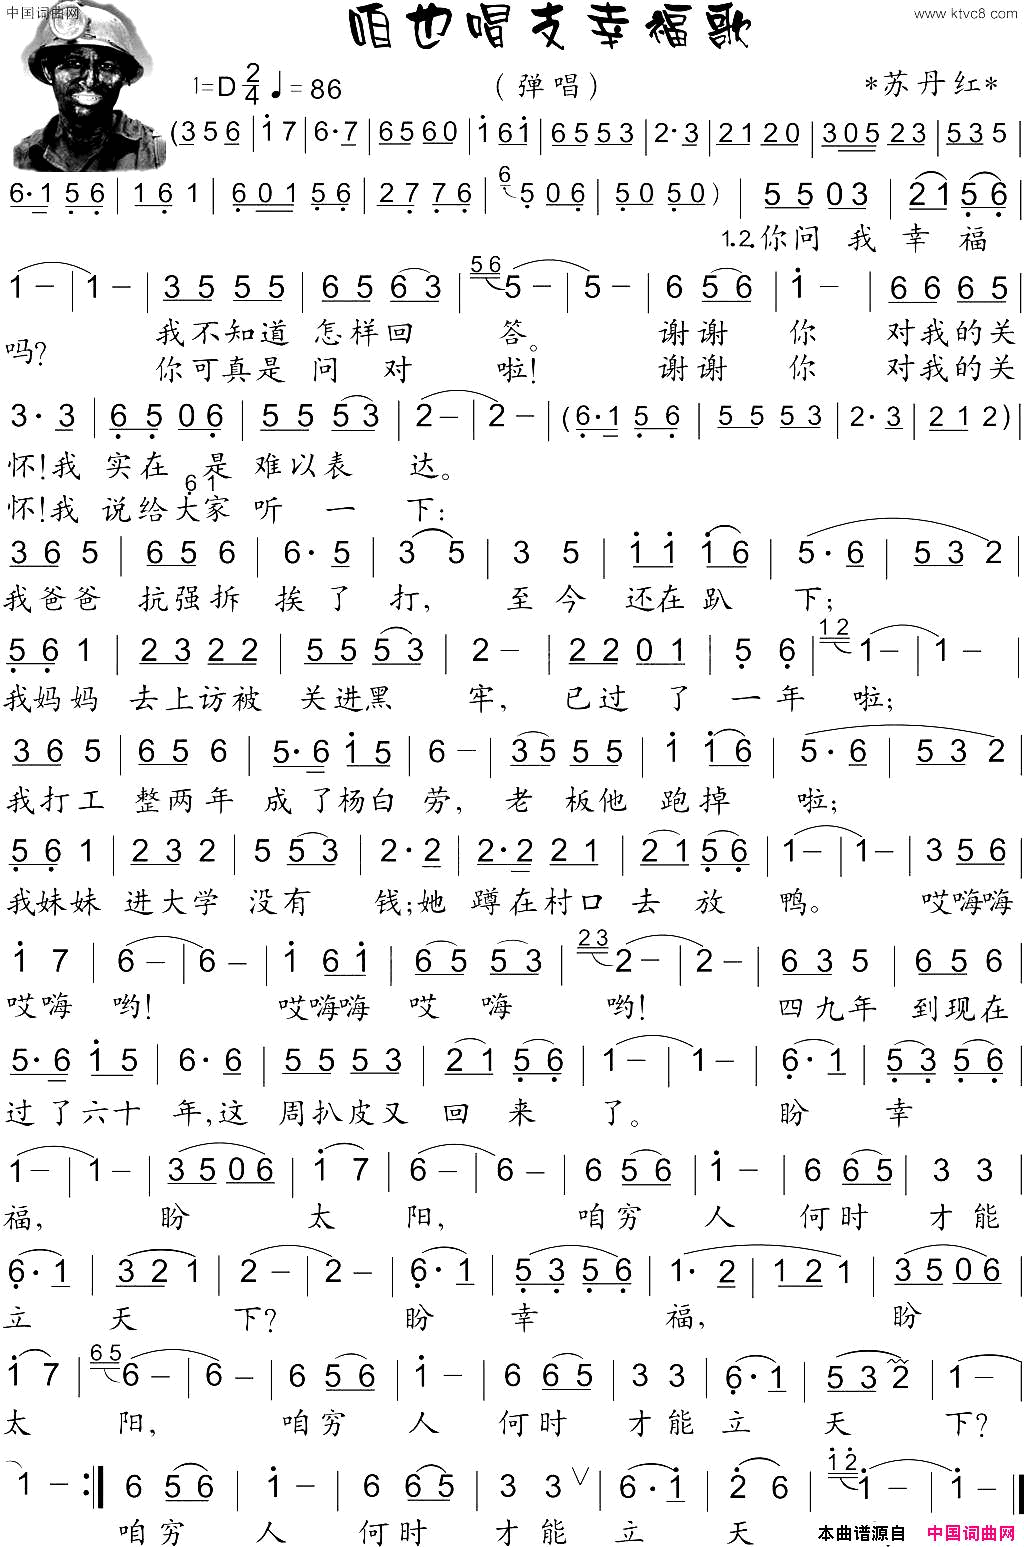 中国词曲网
www.ktvc8.com
咱也唱支幸福歌
1=D 2/4 ♩=86 （弹唱） *苏丹红*
(3 5 6 | i 7 | 6·7 | 6 5 6 0 | i 6 i | 6 5 5 3 | 2·3 | 2 1 2 0 | 3 0 5 2 3 | 5 3 5 |
6·1 5 6 | 1 6 1 | 6 0 1 5 6 | 2 7 7 6 | 6 5 0 6 | 5 0 5 0) | 5 5 0 3 | 2 1 5 6 |
1.2.你问我幸福
1 - | 1 - | 3 5 5 5 | 6 5 6 3 | 5 6 5 - | 5 - | 6 5 6 | i - | 6 6 6 5 |
吗? 我不知道怎样回答。谢谢你对我的关
你可真是问对啦!谢谢你对我的关
3·3 | 6 5 0 6 | 5 5 5 3 | 2 - | 2 - | (6·1 5 6 | 5 5 5 3 | 2·3 | 2 1 2) |
怀!我实在是难以表达。
6 1
怀!我说给大家听一下:
3 6 5 | 6 5 6 | 6·5 | 3 5 | 3 5 | i i i 6 | 5·6 | 5 3 2 |
我爸爸抗强拆挨了打,至今还在趴下;
5 6 1 | 2 3 2 2 | 5 5 5 3 | 2 - | 2 2 0 1 | 5 6 | 1 2 1 - | 1 - |
我妈妈去上访被关进黑牢,已过了一年啦;
3 6 5 | 6 5 6 | 5·6 i 5 | 6 - | 3 5 5 5 | i i 6 | 5·6 | 5 3 2 |
我打工整两年成了杨白劳,老板他跑掉啦;
5 6 1 | 2 3 2 | 5 5 3 | 2·2 | 2·2 2 1 | 2 1 5 6 | 1 - | 1 - | 3 5 6 |
我妹妹进大学没有钱;她蹲在村口去放鸭。哎嗨嗨
i 7 | 6 - | 6 - | i 6 i | 6 5 5 3 | 2 3 2 - | 2 - | 6 3 5 | 6 5 6 |
哎嗨哟!哎嗨嗨哎嗨哟!四九年到现在
5·6 i 5 | 6·6 | 5 5 5 3 | 2 1 5 6 | 1 - | 1 - | 6·1 | 5 3 5 6 |
过了六十年,这周扒皮又回来了。盼幸
1 - | 1 - | 3 5 0 6 | i 7 | 6 - | 6 - | 6 5 6 | i - | 6 6 5 | 3 3 |
福,盼太阳,咱穷人何时才能
6·1 | 3 2 1 | 2 - | 2 - | 6·1 | 5 3 5 6 | 1·2 | 1 2 1 | 3 5 0 6 |
立天下?盼幸福,盼
i 7 | 6 5 6 - | 6 - | 6 5 6 | i - | 6 6 5 | 3 3 | 6·1 | 5 3 2 | 1 -
太阳,咱穷人何时才能立天下?
1 - :| 6 5 6 | i - | 6 6 5 | 3 3 ∨ | 6·i | 2 6 | i 2 i - | i - |
咱穷人何时才能立天
本曲谱源自 中国词曲网